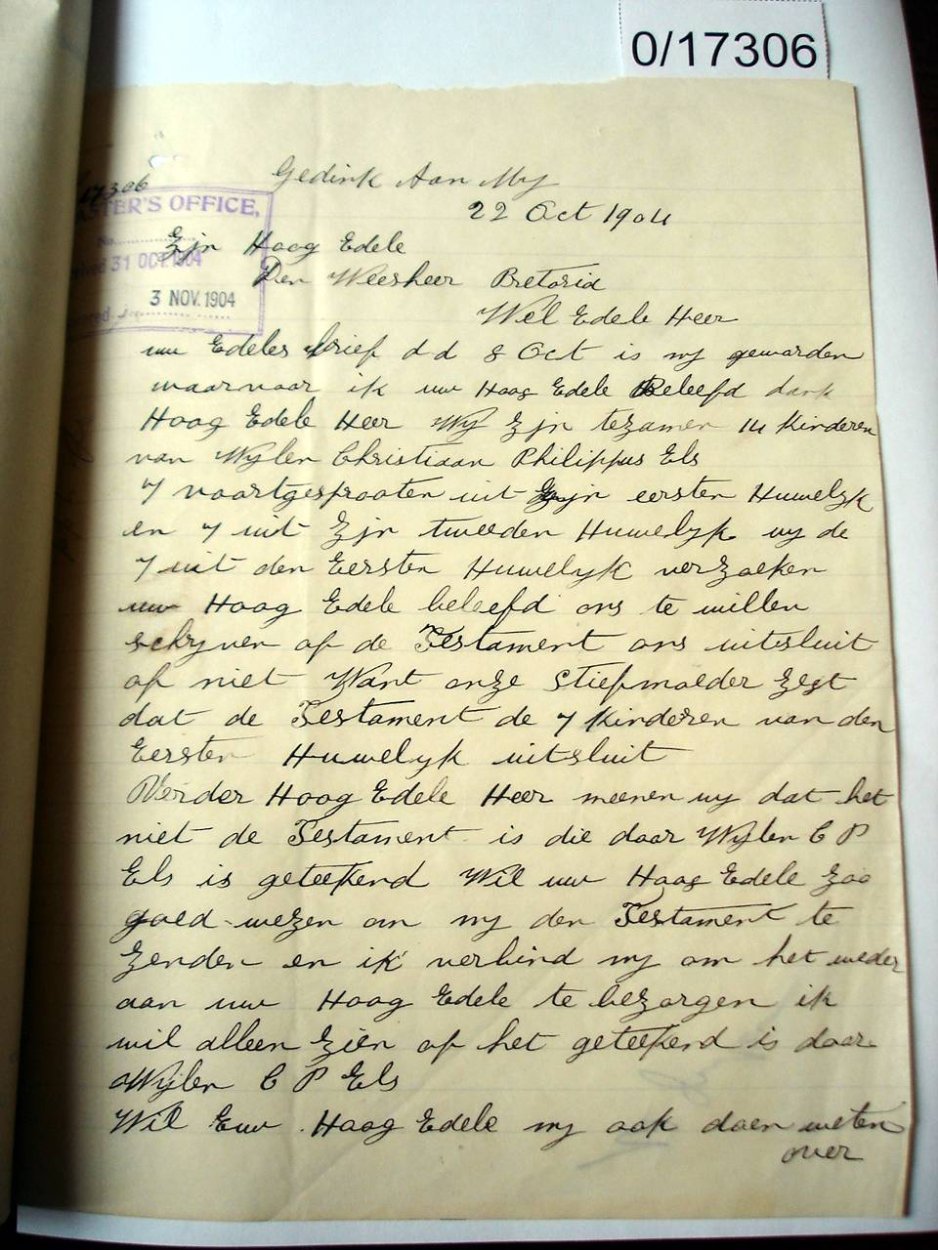 0/17306
17306
Gedink Aan My
22 Oct 1904
MASTER'S OFFICE,
No.
31 OCT. 1904
3 NOV. 1904
Zyn Hoog Edele
Den Weesheer Pretoria
Wel Edele Heer
uw Edeles brief d d 8 Oct is my geworden
waarvoor ik uw Hoog Edele Beleefd dank
Hoog Edele Heer Wy Zyn tezamen 14 Kinderen
van Wylen Christiaan Philippus Els
7 voortgesprooten uit Zyn eersten Huwelyk
en 7 uit Zyn tweeden Huwelyk wy de
7 uit den Eersten Huwelyk verzoeken
uw Hoog Edele beleefd ons te willen
schryven of de Testament ons uitsluit
of niet Want onze Stiefmoeder Zegt
dat de Testament de 7 Kinderen van den
Eersten Huwelyk uitsluit
Verder Hoog Edele Heer meenen wy dat het
niet de Testament is die door Wylen C P
Els is geteekend Wil uw Hoog Edele Zoo
goed wezen om my den Testament te
Zenden en ik verbind my om het weder
aan uw Hoog Edele te bezorgen ik
wil alleen Zien of het geteekend is door
Wylen C P Els
Wil Euw Hoog Edele my ook doen weten
over